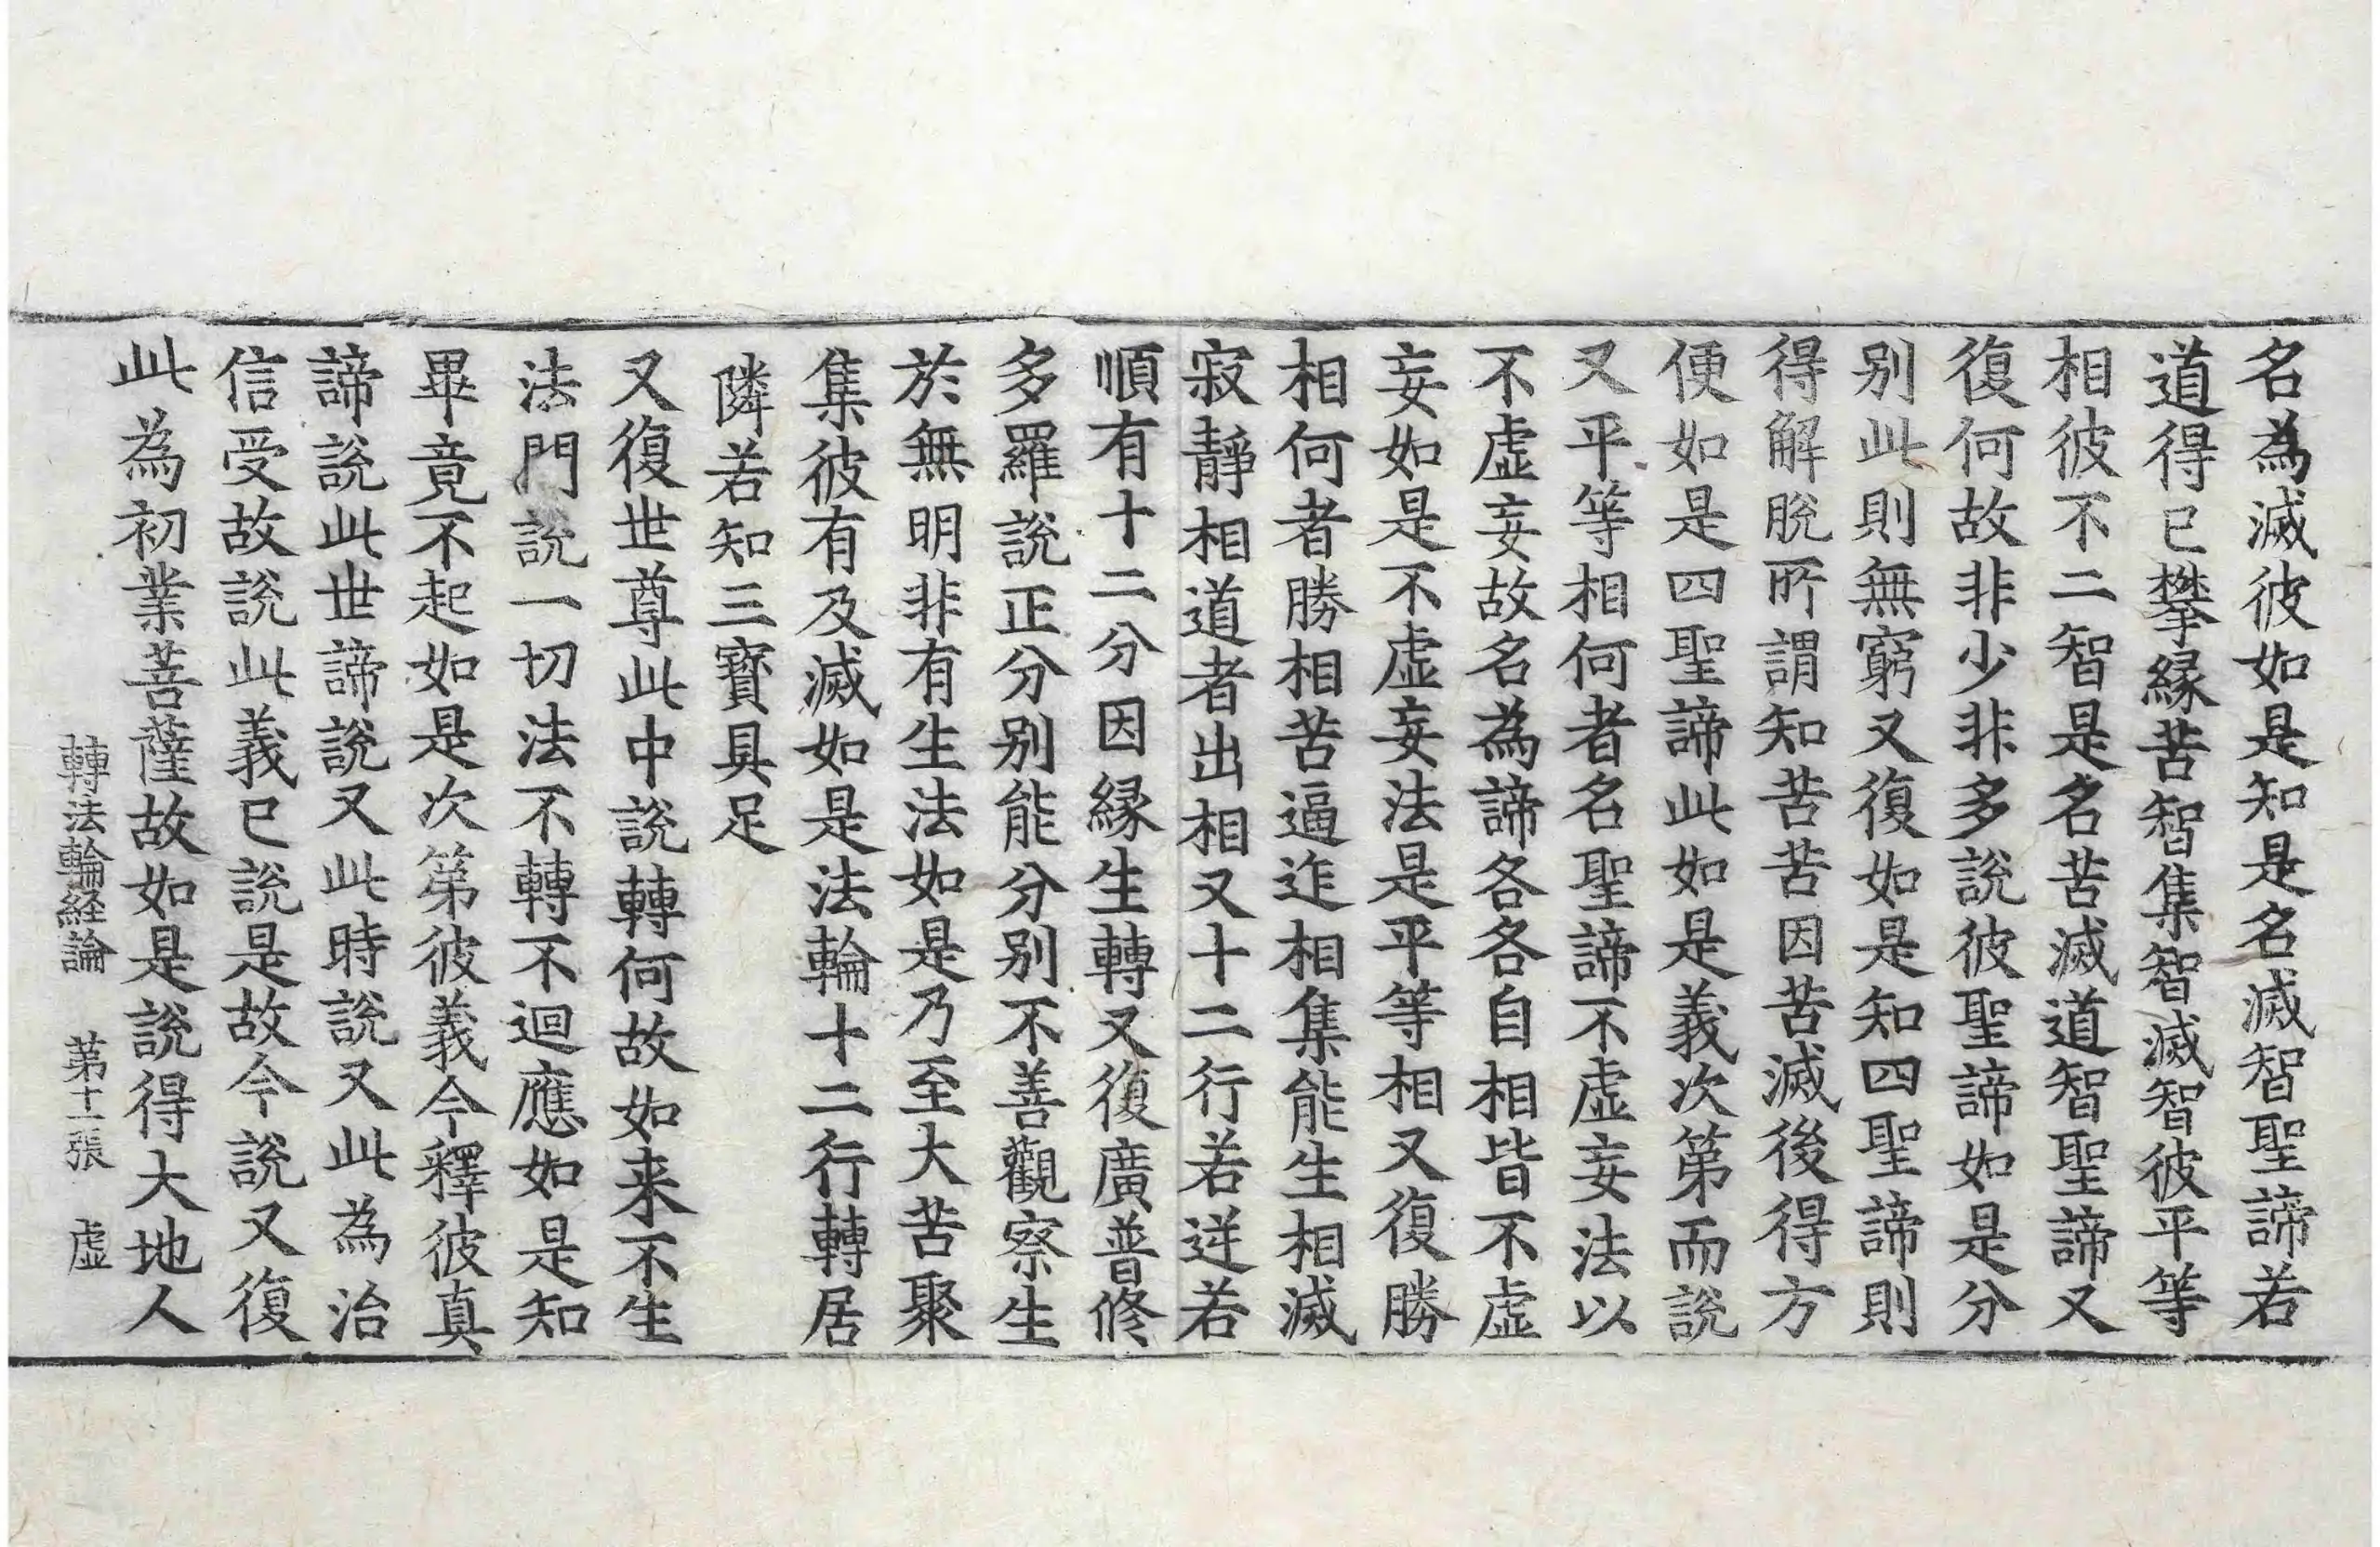 名為滅彼如是知是名滅智聖諦若
道得已攀縁苦智集智滅智彼平等
相彼不二智是名苦滅道智聖諦又
復何故非少非多說彼聖諦如是分
别此則無窮又復如是知四聖諦則
得解脫所謂知苦苦因苦滅後得方
便如是四聖諦此如是義次第而說
又平等相何者名聖諦不虛妄法以
不虛妄故名為諦各各自相皆不虛
妄如是不虛妄法是平等相又復勝
相何者勝相苦逼迮相集能生相滅
寂靜相道者出相又十二行若逆若
順有十二分因縁生轉又復廣普修
多羅說正分别能分别不善觀察生
於無明非有生法如是乃至大苦聚
集彼有及滅如是法輪十二行轉居
隣若知三寶具足
又復世尊此中說轉何故如来不生
法門說一切法不轉不迴應如是知
畢竟不起如是次第彼義今釋彼真
諦說此世諦說又此時說又此為治
信受故說此義已說是故今說又復
此為初業菩薩故如是說得大地人
轉法輪経論 第十二張 虛